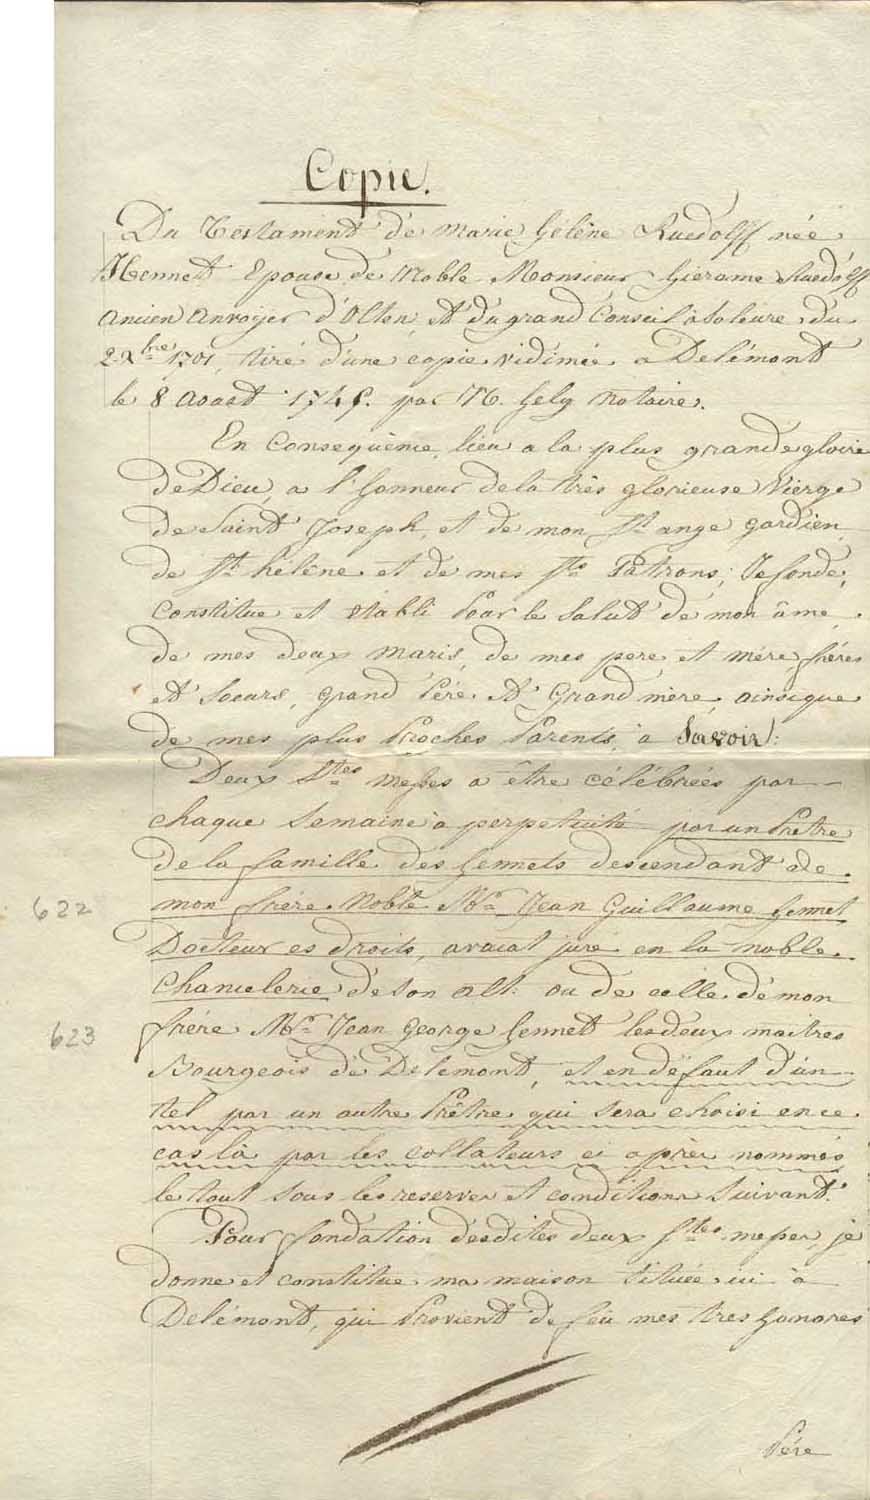 Copie.
Du Testament de Marie Hélène Ruedolff née
Hennet Epouse de Noble Monsieur Hierome Ruedolff
Ancien Anvoijer d'Olten et du grand Conseil à Soleure du
2 Xbre 1701, tiré d'une copie vidimée a Delémont
le 8 Aoast 1745. par M. Hely Notaire.
En Consequênce, lieu a la plus grande gloire
de Dieu, a l'honneur de la très glorieuse Vierge
de Saint Joseph, et de mon St ange gardien
de Ste hélène et de mes Sts Patrons; Je fonde,
Constitue et établi Pour le Salut de mon âme,
de mes deux maris, de mes pere et mére, fréres
et Soeurs, grand Pére et Grand mère, ainsique
de mes plus Proches Parents, à Savoir:
Deux Stes messes a être célébrées par
chaque Semaine à perpetuité par un Prêtre
de la famille des Hennets descendant de
622
mon frére Noble Mr. Jean Guillaume Hennet
Docteur es droits, avocat juré en la noble
Chancelerie de Son Alt. ou de celle de mon
623
frére Mr. Jean George Hennet les deux maitres
Bourgeois de Delémont, et en défaut d'un
tel par un autre Prêtre qui sera choisi en ce
cas là par les collateurs ci après nommés
le tout sous les reserves et conditions Suivant.
Pour fondation desdites deux Stes messes, je
donne et constitue ma maison Située ici à
Delémont, qui Provient de feu mes tres honorés
Pére